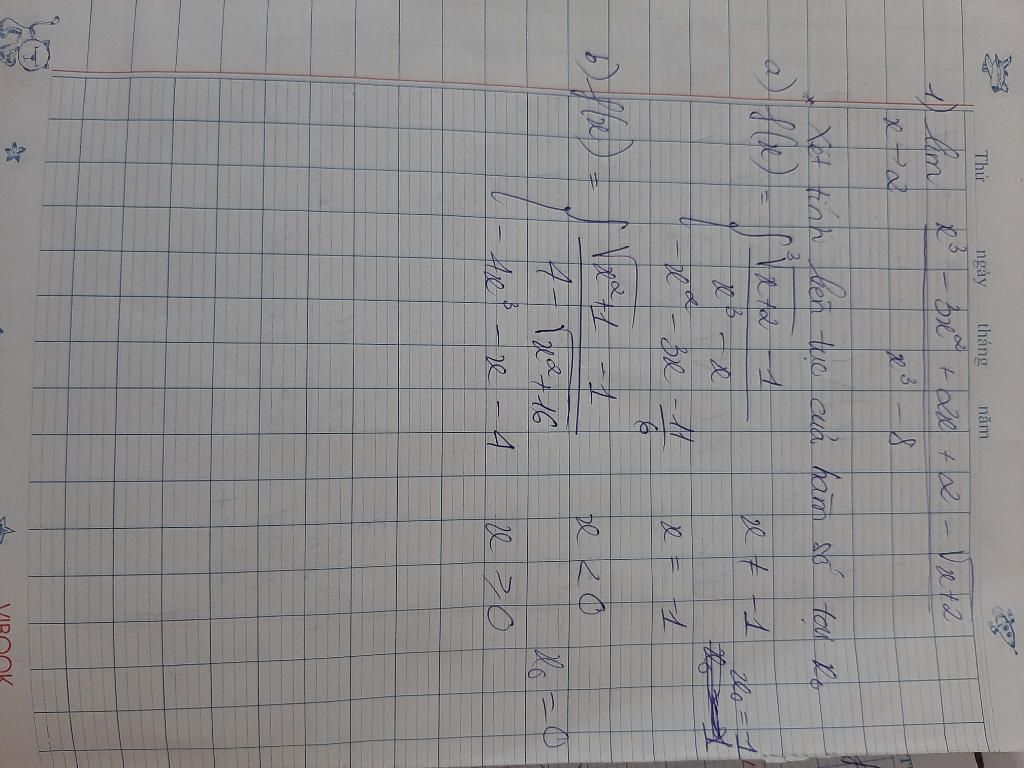 Thứ ngày tháng năm
1) lim x³ - 3x² + 2x + 2 - √x+2
x→2 x³ - 8
* Xét tính liên tục của hàm số tại x₀
a) f(x) = { ³√x+2 - 1
x³ - x x ≠ -1 x₀ = -1
-x² - 3x - 11/6 x = -1
b) f(x) = { √x²+1 - 1 x < 0
4 - √x²+16 x₀ = 0
-4x³ - x - 4 x ≥ 0
VIBOOK